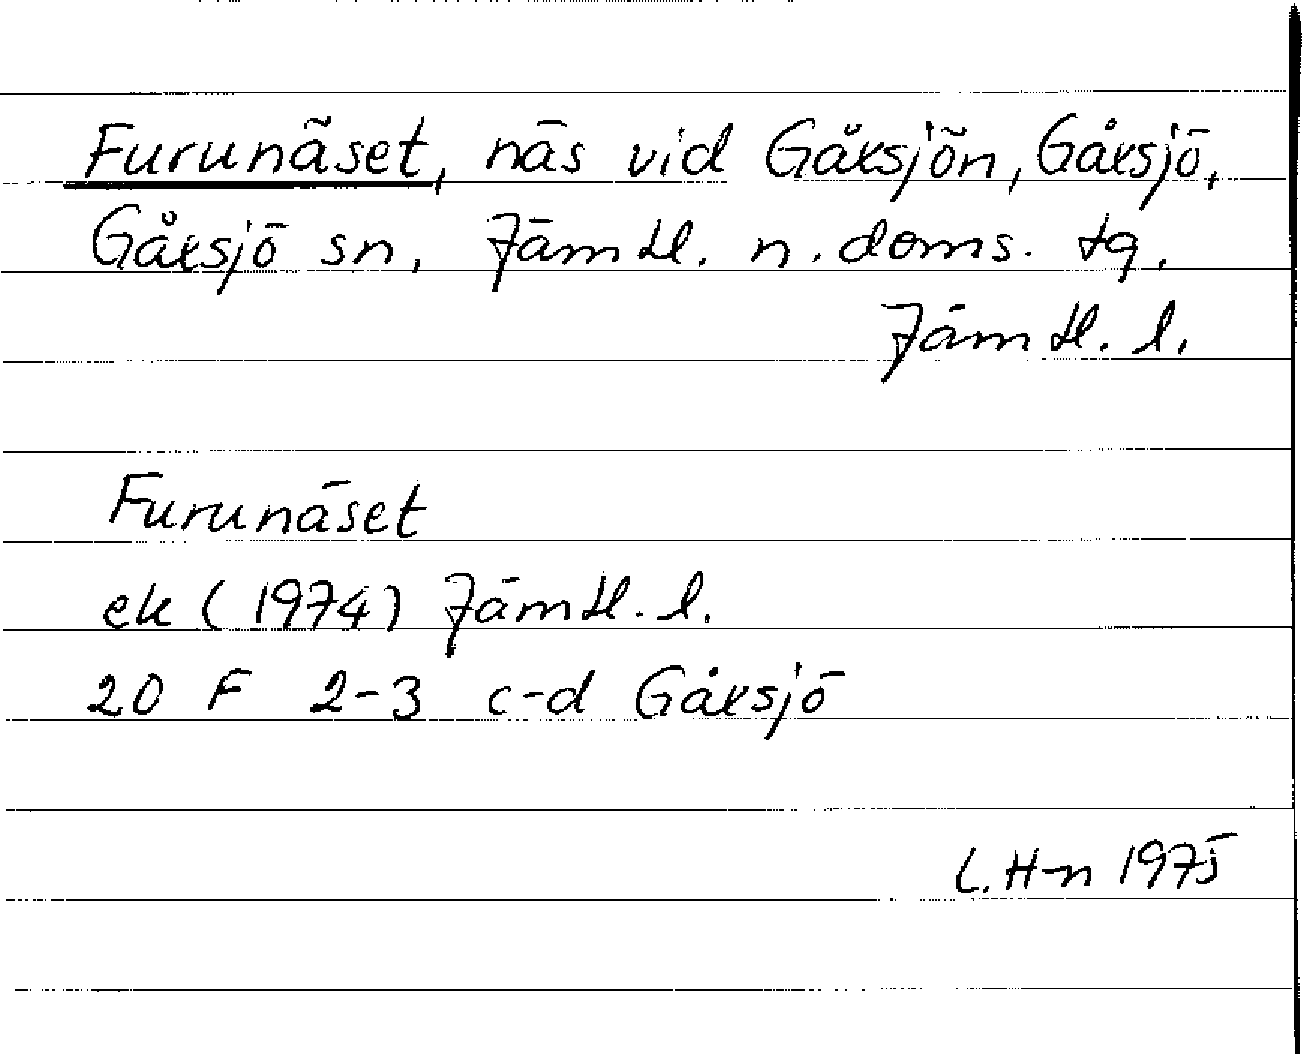 Furunäset, näs vid Gåxsjön, Gåxsjö,
Gåxsjö sn, Jämtl. n. doms. tg.
Jämtl. l.
Furunäset
ek (1974) Jämtl. l.
20 F 2-3 c-d Gåxsjö
L. H-n 1975